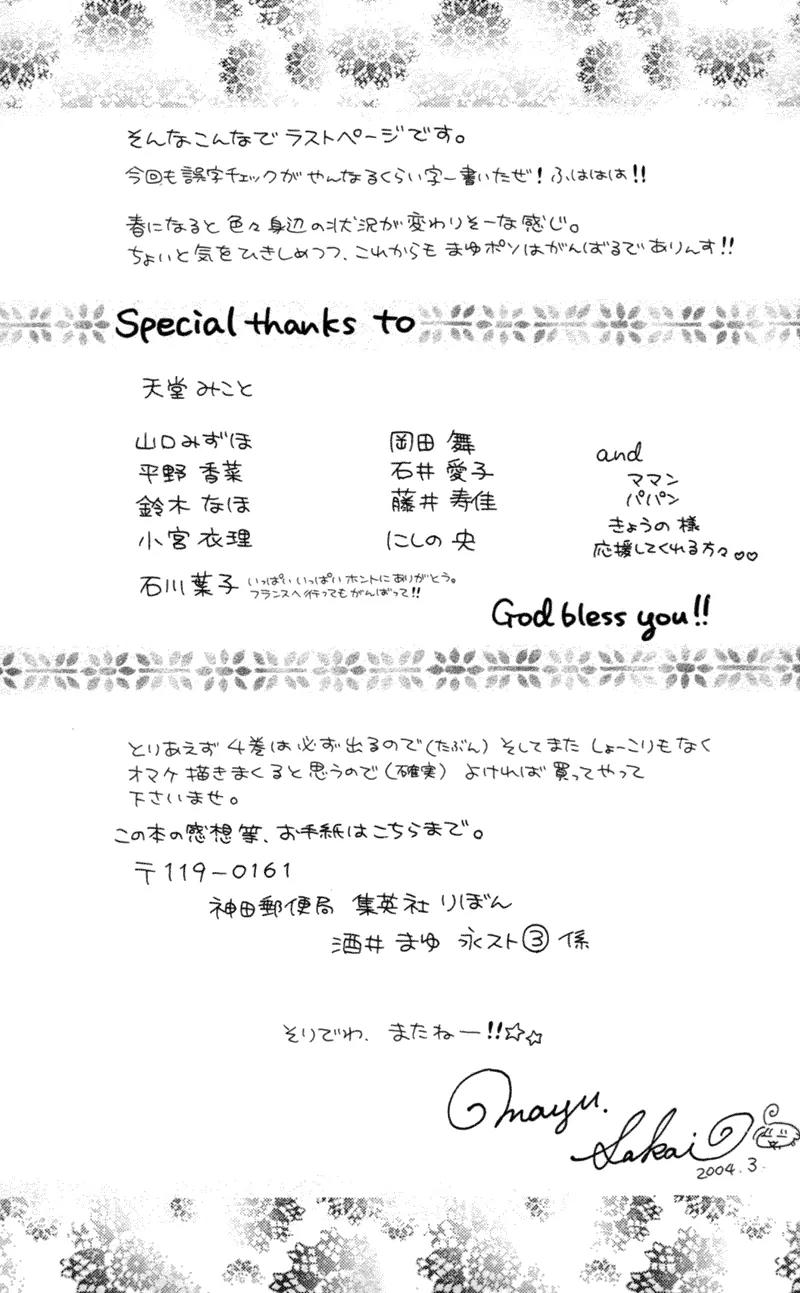 そんなこんなで ラストページです。
今回も誤字チェックが やんなるくらい字ー書いたぜ！ふははは!!
春になると色々身辺の状況が変わりそーな感じ。
ちょいと気をひきしめつつ、これからも まゆポンはがんばるでありんす!!
Special thanks to
天堂 みこと
山口みずほ
平野 香菜
鈴木 なほ
小宮 衣理
石川 葉子 いっぱい いっぱい ホントに ありがとう。
フランスへ行っても がんばって!!
岡田 舞
石井 愛子
藤井 寿佳
にしの 央
and
ママン
パパン
きょうの 様
応援してくれる方々♡♡
God bless you!!
とりあえず 4巻は必ず出るので(たぶん) そしてまた しょーこりもなく
オマケ描きまくると思うので(確実) よければ買ってやって
下さいませ。
この本の感想等、お手紙はこちらまで。
〒119-0161
神田郵便局 集英社 りぼん
酒井 まゆ 永スト③ 係
そりでわ、またねー!!☆☆
mayu.
Sakai
2004.3.